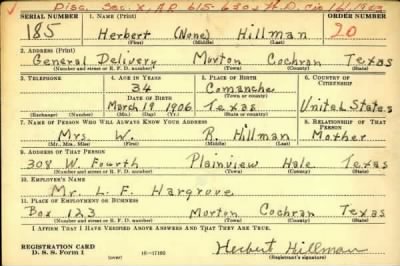 Disc. Sec. X, AR 615-630
SERIAL NUMBER 1. NAME (Print) ORDER NUMBER
185 Herbert (None) Hillman 20
(First) (Middle) (Last)
2. ADDRESS (Print)
General Delivery Morton Cochran Texas
(Number and street or R. F. D. number) (Town) (County) (State)
3. TELEPHONE 4. AGE IN YEARS 5. PLACE OF BIRTH 6. COUNTRY OF CITIZENSHIP
34 Comanche
DATE OF BIRTH (Town or county)
March 19 1906 Texas United States
(Exchange) (Number) (Mo.) (Day) (Yr.) (State or country)
7. NAME OF PERSON WHO WILL ALWAYS KNOW YOUR ADDRESS 8. RELATIONSHIP OF THAT PERSON
Mrs. W. R. Hillman Mother
(Mr., Mrs., Miss) (First) (Middle) (Last)
9. ADDRESS OF THAT PERSON
308 W. Fourth Plainview Hale Texas
(Number and street or R. F. D. number) (Town) (County) (State)
10. EMPLOYER'S NAME
Mr. L. F. Hargrove
11. PLACE OF EMPLOYMENT OR BUSINESS
Box 123 Morton Cochran Texas
(Number and street or R. F. D. number) (Town) (County) (State)
I AFFIRM THAT I HAVE VERIFIED ABOVE ANSWERS AND THAT THEY ARE TRUE.
REGISTRATION CARD
D. S. S. Form 1 (over) 16-17105 Herbert Hillman
(Registrant's signature)